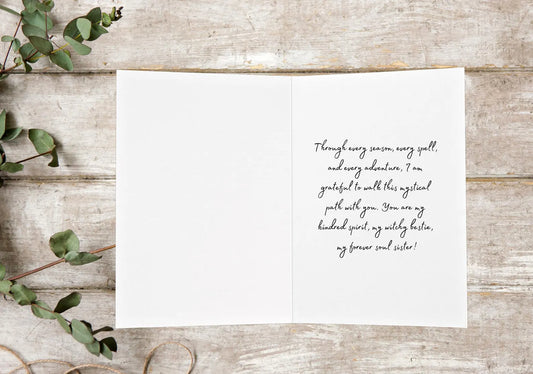 Through every season, every spell,
and every adventure, I am
grateful to walk this mystical
path with you. You are my
kindred spirit, my witchy bestie,
my forever soul sister!